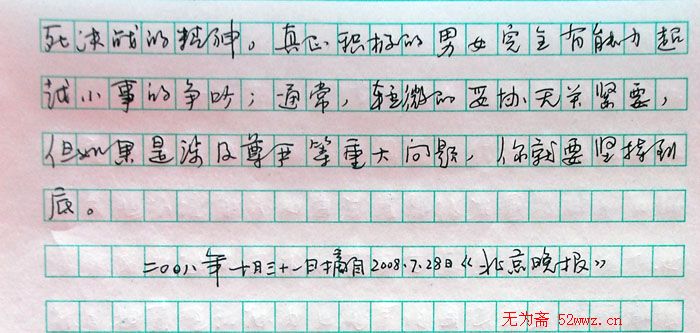 死决战的精神。真正积极的男女完全有能力超
越小事的争吵；通常，轻微的妥协无关紧要，
但如果是涉及尊严等重大问题，你就要坚持到
底。
二00八年十月三十一日摘自2008.7.28日《北京晚报》
无为斋 52wwz.cn